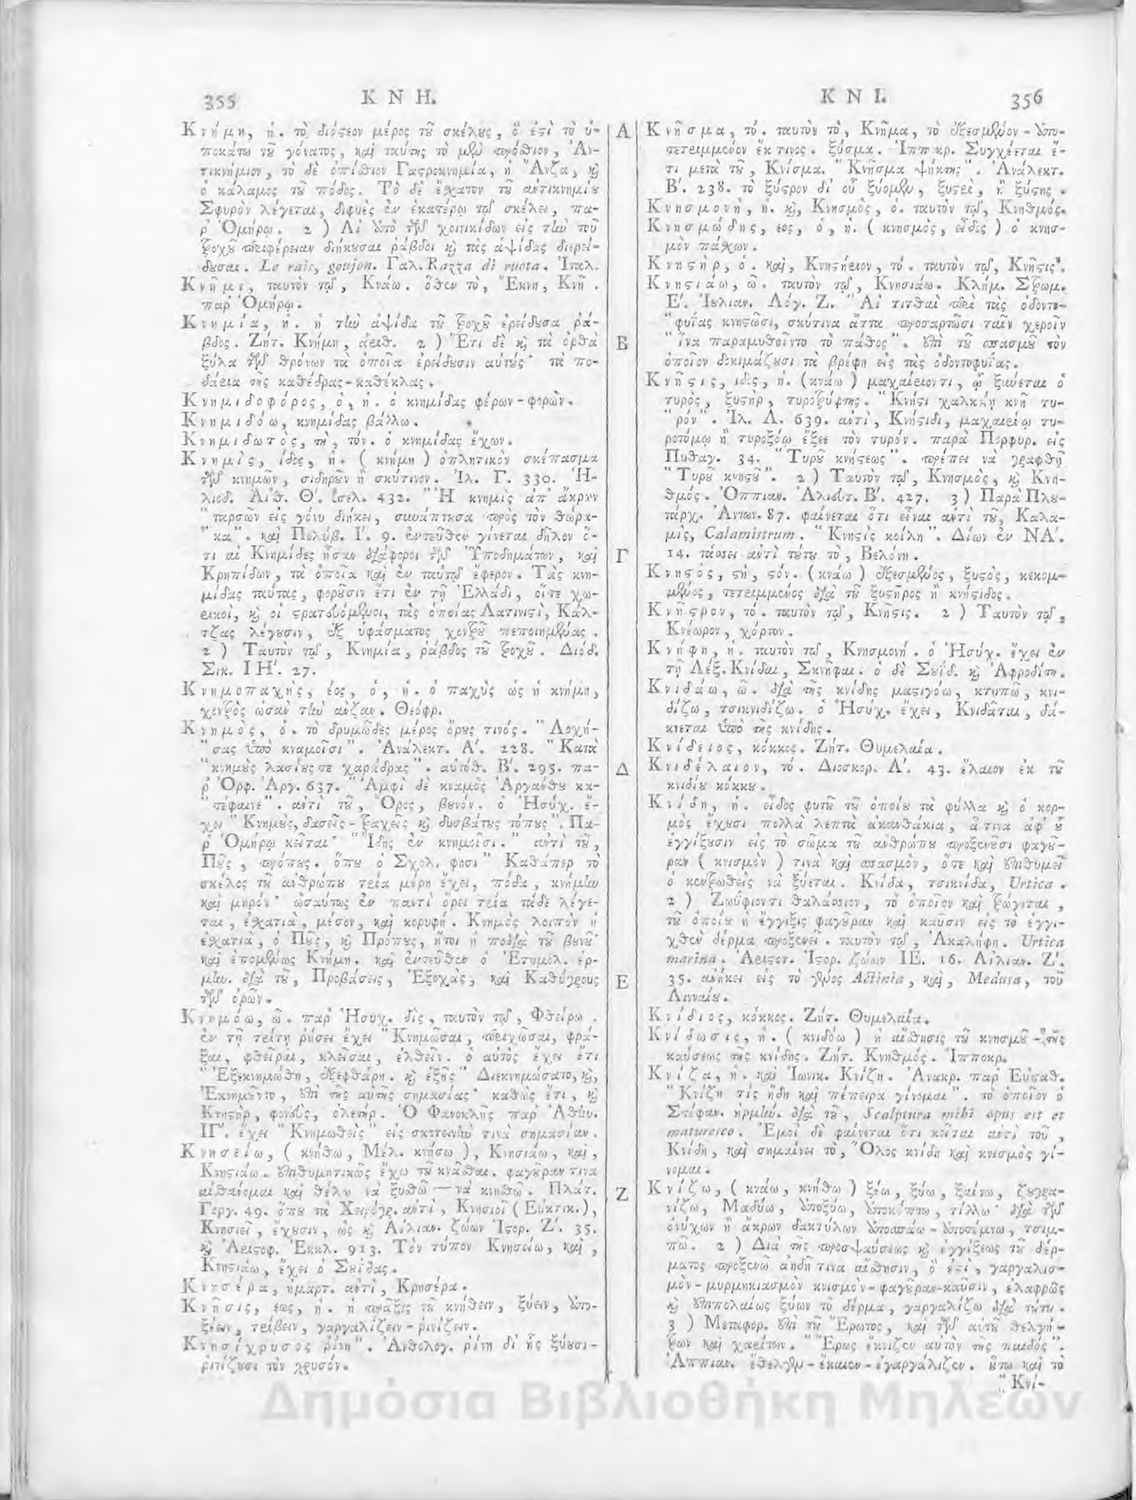 355
Κ Ν Η.
Κνήμη, ἡ. τὸ διόστεον μέρος τοῦ σκέλους, ὅ ἐστι τὸ ὑ-
ποκάτω τοῦ γόνατος, καὶ ταύτης τὸ μὲν πρόσθιον, Ἀν-
τικνήμιον, τὸ δὲ ὀπίσθιον Γαστροκνημία, ἡ Ἄνζα, καὶ
ὁ κάλαμος τοῦ πόδος. Τὸ δὲ ἔσχατον τοῦ ἀντικνημίου
Σφυρὸν λέγεται, διφυὲς ἐν ἑκατέρῳ τῷ σκέλει, πα-
ρ' Ὁμήρῳ. 2 ) Αἱ ἀπὸ τῶν χοινικίδων εἰς τὴν τοῦ
τροχοῦ περιφέρειαν διήκουσαι ράβδοι καὶ τὰς ἁψίδας διερεί-
δουσαι. Le rais, goujon. Γαλ. Razza di ruota. Ἰταλ.
Κνῆμι, ταυτὸν τῷ, Κνάω. ὅθεν τὸ, Ἔκνη, Κνῆ.
παρ' Ὁμήρῳ.
Κνημία, ἡ. ἡ τὴν ἁψίδα τοῦ τροχοῦ ἐρείδουσα ρά-
βδος. Ζήτ. Κνήμη, ἀριθ. 2 ) Ἔτι δὲ καὶ τὰ ὀρθὰ
ξύλα τῶν θρόνων τὰ ὁποῖα ἐρείδουσιν αὐτούς· τὰ πο-
δάρια τῆς καθέδρας - καθέκλας.
Κνημιδοφόρος, ὁ, ἡ. ὁ κνημίδας φέρων - φορῶν.
Κνημιδόω, κνημίδας βάλλω.
Κνημιδωτὸς, τὴ, τόν. ὁ κνημίδας ἔχων.
Κνημὶς, ῖδος, ἡ. ( κνήμη ) ὁπλητικὸν σκέπασμα
τῶν κνημῶν, σιδηροῦν ἢ σκύτινον. Ἰλ. Γ. 330. Ἡ-
λιόδ. Αἰθ. Θ'. σελ. 432. "Ἡ κνημὶς ἀπ' ἄκρων
"ταρσῶν εἰς γόνυ διήκει, συνάπτουσα πρὸς τὸν θώρα-
"κα". καὶ Πολύβ. Ι'. 9. ἐντεῦθεν γίνεται δῆλον ὅ-
τι αἱ Κνημίδες ἦσαν διάφοροι τῶν Ὑποδημάτων, καὶ
Κρηπίδων, τὰ ὁποῖα καὶ ἐν ταυτῷ ἔφερον. Τὰς κνη-
μίδας ταύτας, φοροῦσιν ἔτι ἐν τῇ Ἑλλάδι, οἵτε χω-
ρικοὶ, καὶ οἱ στρατευόμενοι, τὰς ὁποίας Λατινιστὶ, Κάλ-
τζας λέγουσιν, ἐξ ὑφάσματος χονδροῦ πεποιημένας.
2 ) Ταυτὸν τῷ, Κνημία, ράβδος τοῦ τροχοῦ. Διόδ.
Σικ. ΙΗ'. 27.
Κνημοπαχὴς, έος, ὁ, ἡ. ὁ παχὺς ὡς ἡ κνήμη,
χονδρὸς ὡσὰν τὴν ἄνζαν. Θεόφρ.
Κνημὸς, ὁ. τὸ δρυμῶδες μέρος ὄρους τινός. "Λοχή-
"σας ὑπὸ κναμοῖσι". Ἀνάλεκτ. Α'. 228. "Κατὰ
"κνημοὺς λασίους τε χαράδρας". αὐτόθ. Β'. 295. πα-
ρ' Ὀρφ. Ἀργ. 637. "Ἀμφὶ δὲ κναμὸς Ἀργάνθου κα-
"τέφαινε". ἀντὶ τοῦ, Ὄρος, βουνόν. ὁ Ἡσύχ. ἔ-
χει "Κνημοὺς, δασεῖς - τραχεῖς καὶ δυσβάτους τόπους". Πα-
ρ' Ὁμήρῳ κεῖται "Ἴδης ἐν κνημοῖσι." ἀντὶ τοῦ,
Ποῦς, πρόπους. ὅπου ὁ Σχολ. φησὶ "Καθάπερ τὸ
σκέλος τοῦ ἀνθρώπου τρία μέρη ἔχει, πόδα, κνήμην
καὶ μηρὸν· ὡσαύτως ἐν παντὶ ὄρει τρία τάδε λέγε-
ται, ἐσχατιὰ, μέσον, καὶ κορυφή. Κνημὸς λοιπὸν ἡ
ἐσχατιὰ, ὁ Ποῦς, καὶ Πρόπους, ἤτοι ἡ ποδιὰ τοῦ βουνοῦ·
καὶ ἑπομένως Κνήμη. καὶ ἐντεῦθεν ὁ Ἐτυμολ. ἑρ-
μην. διὰ τοῦ, Προβάσεις, Ἐξοχὰς, καὶ Καθύγρους
τῶν ὀρῶν.
Κνημόω, ῶ. παρ' Ἡσυχ. δὶς, ταυτὸν τῷ, Φθείρω.
ἐν τῇ τρίτῃ ρήσει ἔχει "Κνημῶσαι, περιζῶσαι, φρά-
ξαι, φθεῖραι, κλεῖσαι, ἐλθεῖν. ὁ αὐτὸς ἔχει ἔτι
"Ἐξεκνημώθη, ἐξεφθάρη. καὶ ἑξῆς "Διεκνημώσατο, καὶ,
Ἐκνημοῦντο, ἐπὶ τῆς αὐτῆς σημασίας· καθὼς ἔτι, καὶ
Κνηστὴρ, φονεὺς, ὀλετήρ. Ὁ Φανοκλῆς παρ' Ἀθην.
ΙΓ'. ἔχει "Κνημωθεὶς" εἰς σκοτεινήν τινα σημασίαν.
Κνησείω, ( κνήθω, Μέλ. κνήσω ), Κνησιάω, καὶ,
Κνηστιάω. ἐπιθυμητικῶς ἔχω τοῦ κνᾶσθαι. φαγοῦραν τινα
αἰσθάνομαι καὶ θέλω νὰ ξυθῶ — νὰ κνηθῶ. Πλάτ.
Γοργ. 49. ὅπου τὰ Χειρόγρ. ἀντὶ, Κνησιοῖ ( Εὐκτικ. ),
Κνησιεῖ, ἔχουσιν, ὡς καὶ Αἰλιαν. ζώων Ἱστορ. Ζ'. 35.
καὶ Ἀριστοφ. Ἐκκλ. 913. Τὸν τύπον Κνησείω, καὶ,
Κνηστιάω, ἔχει ὁ Σουΐδας.
Κνησέρα, ἡμαρτ. ἀντὶ, Κρησέρα.
Κνῆσις, εως, ἡ. ἡ πρᾶξις τοῦ κνήθειν, ξύειν, ἀπο-
ξέειν, τρίβειν, γαργαλίζειν - ρινίζειν.
Κνησίχρυσος ρίνη". Ἀνθολογ. ρίνη δι' ἧς ξύουσι-
ρινίζουσι τὸν χρυσόν.
Α
Β
Γ
Δ
Ε
Ζ
Κ Ν Ι.
356
Κνῆσμα, τό. ταυτὸν τὸ, Κνῆμα, τὸ ἐξεσμένον - ἀπο-
τετριμμένον ἔκ τινος. ξύσμα. Ἱπποκρ. Συγχέεται ἔ-
τι μετὰ τοῦ, Κνίσμα. "Κνῆσμα ψήκτης". Ἀνάλεκτ.
Β'. 238. τὸ ξύστρον δι' οὗ ξύομεν, ξυστρὶ, ἢ ξύστης.
Κνησμονὴ, ἡ. καὶ, Κνησμὸς, ὁ. ταυτὸν τῷ, Κνηθμός.
Κνησμώδης, εος, ὁ, ἡ. ( κνησμὸς, εἶδος ) ὁ κνησ-
μὸν πάσχων.
Κνηστὴρ, ὁ. καὶ, Κνηστήριον, τό. ταυτὸν τῷ, Κνῆστις.
Κνηστιάω, ῶ. ταυτὸν τῷ, Κνησιάω. Κλήμ. Στρωμ.
Ε'. Ἰουλιαν. Λόγ. Ζ. "Αἱ τιτθαὶ περὶ τὰς ὀδοντο-
"φυΐας κνηστῶσι, σκύτινα ἄττα προσαρτῶσι ταῖν χεροῖν
"ἵνα παραμυθοῖντο τὸ πάθος". ἐπὶ τοῦ σπασμοῦ τὸν
ὁποῖον δοκιμάζουσι τὰ βρέφη εἰς τὰς ὀδοντοφυΐας.
Κνῆστις, ιδος, ἡ. (κνάω ) μαχαίριόν τι, ᾧ ξύεται ὁ
τυρὸς, ξυστὴρ, τυροτρύφτης. "Κνήστι χαλκείῃ κνῆ τυ-
"ρόν". Ἰλ. Λ. 639. ἀντὶ, Κνήστιδι, μαχαιρίῳ τυ-
ροτόμῳ ἢ τυροξόῳ ἔξεε τὸν τυρόν. παρὰ Πορφυρ. εἰς
Πυθαγ. 34. "Τυροῦ κνήστεως". πρέπει νὰ γραφθῇ
"Τυροῦ κνηστοῦ". 2 ) Ταυτὸν τῷ, Κνησμὸς, καὶ Κνη-
θμός. Ὀππιαν. Ἁλιευτ. Β'. 427. 3 ) Παρὰ Πλου-
τάρχ. Ἀντων. 87. φαίνεται ὅτι εἶναι ἀντὶ τοῦ, Καλα-
μὶς, Calamistrum. "Κνηστὶς κοίλη". Δίων ἐν ΝΑ'.
14. τάσσει ἀντὶ τούτου τὸ, Βελόνη.
Κνηστὸς, στὴ, στόν. (κνάω ) ἐξεσμένος, ξυστὸς, κεκομ-
μένος, τετριμμένος διὰ τοῦ ξυστῆρος ἢ κνήστιδος.
Κνῆστρον, τό. ταυτὸν τῷ, Κνῆστις. 2 ) Ταυτὸν τῷ,
Κνέωρον, χόρτον.
Κνήφη, ἡ. ταυτὸν τῷ, Κνησμονή. ὁ Ἡσύχ. ἔχει ἐν
τῇ Λέξ. Κνίδαι, Σκνῆφαι. ὁ δὲ Σουΐδ. καὶ Ἀφροδίτη.
Κνιδάω, ῶ. διὰ τῆς κνίδης μαστιγόω, κτυπῶ, κνι-
δίζω, τσικνιδίζω. ὁ Ἡσύχ. ἔχει, Κνιδᾶται, δά-
κνεται ὑπὸ τῆς κνίδης.
Κνίδειος, κόκκος. Ζήτ. Θυμελαία.
Κνιδέλαιον, τό. Διοσκορ. Α'. 43. ἔλαιον ἐκ τοῦ
κνιδίου κόκκου.
Κνίδη, ἡ. εἶδος φυτοῦ τοῦ ὁποίου τὰ φύλλα καὶ ὁ κορ-
μὸς ἔχουσι πολλὰ λεπτὰ ἀκανθάκια, ἅτινα ἀφ' οὗ
ἐγγίξουσιν εἰς τὸ σῶμα τοῦ ἀνθρώπου προξενοῦσι φαγοῦ-
ραν ( κνισμὸν ) τινὰ καὶ σπασμὸν, ὅτε καὶ ἐπιθυμεῖ
ὁ κεντρωθεὶς νὰ ξύεται. Κνίδα, τσικνίδα, Urtica.
2 ) Ζωΰφιόν τι θαλάσσιον, τὸ ὁποῖον καὶ τρώγεται,
τοῦ ὁποίου ἡ ἔγγιξις φαγοῦραν καὶ καῦσιν εἰς τὸ ἐγγι-
χθὲν δέρμα προξενεῖ. ταυτὸν τῷ, Ἀκαλήφη. Urtica
marina. Ἀριστοτ. Ἱστορ. ζώων ΙΕ. 16. Αἰλιαν. Ζ'.
35. ἀνήκει εἰς τὸ γένος Actinia, καὶ, Medusa, τοῦ
Λινναίου.
Κνίδιος, κόκκος. Ζήτ. Θυμελαία.
Κνίδωσις, ἡ. ( κνιδόω ) ἡ αἴσθησις τοῦ κνησμοῦ - τῆς
καύσεως τῆς κνίδης. Ζήτ. Κνηθμός. Ἱπποκρ.
Κνίζα, ἡ. καὶ Ἰωνικ. Κνίζη. Ἀνακρ. παρ' Εὐσταθ.
"Κνίζη τις ἤδη καὶ πέπειρα γίνομαι". τὸ ὁποῖον ὁ
Στέφαν. ἡρμην. διὰ τοῦ, Scalptura mihi opus est et
maturesco. Ἐμοὶ δὲ φαίνεται ὅτι κεῖται ἀντὶ τοῦ,
Κνίδη, καὶ σημαίνει τὸ, Ὅλος κνίδη καὶ κνισμὸς γί-
νομαι.
Κνίζω, ( κνάω, κνήθω ) ξέω, ξύω, ξαίνω, ζουγρα-
νίζω, Μαδύω, ἀποξύω, ἀποκόπτω, τίλλω· διὰ τῶν
ὀνύχων ἢ ἄκρων δακτύλων ἀποσπάω - ἀποτέμνω, τσιμ-
πῶ. 2 ) Διὰ τῆς προσψαύσεως καὶ ἐγγίξεως τοῦ δέρ-
ματος προξενῶ ἀηδῆ τινα αἴσθησιν, ὅ ἐστι, γαργαλισ-
μὸν - μυρμηκιασμὸν κνισμὸν - φαγοῦραν - καῦσιν, ἐλαφρῶς
καὶ ἐπιπολαίως ξύων τὸ δέρμα, γαργαλίζω διὰ τούτου.
3 ) Μεταφορ. ἐπὶ τοῦ Ἔρωτος, καὶ τῶν αὐτοῦ θελγή-
τρων καὶ χαρίτων. "Ἔρως ἔκνιζεν αὐτὸν τῆς παιδός".
Ἀππιαν. ἔθελγεν - ἔκαιεν - ἐγαργάλιζεν. οὕτω καὶ τὸ
"Κνί-
Δημόσια Βιβλιοθήκη Μηλεών